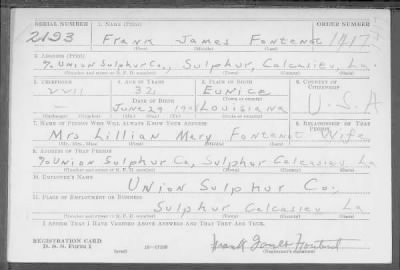 SERIAL NUMBER 1. NAME (Print) ORDER NUMBER
2193 Frank James Fontenot 1417
(First) (Middle) (Last)
2. ADDRESS (Print)
% Union Sulphur Co., Sulphur, Calcasieu, La.
(Number and street or R. F. D. number) (Town) (County) (State)
3. TELEPHONE 4. AGE IN YEARS 5. PLACE OF BIRTH 6. COUNTRY OF CITIZENSHIP
32 Eunice
DATE OF BIRTH (Town or county)
— June 29 1908 Louisiana U.S.A
(Exchange) (Number) (Mo.) (Day) (Yr.) (State or country)
7. NAME OF PERSON WHO WILL ALWAYS KNOW YOUR ADDRESS 8. RELATIONSHIP OF THAT PERSON
Mrs Lillian Mary Fontenot Wife
(Mr., Mrs., Miss) (First) (Middle) (Last)
9. ADDRESS OF THAT PERSON
% Union Sulphur Co, Sulphur Calcasieu La
(Number and street or R. F. D. number) (Town) (County) (State)
10. EMPLOYER'S NAME
Union Sulphur Co.,
11. PLACE OF EMPLOYMENT OR BUSINESS
Sulphur Calcasieu La
(Number and street or R. F. D. number) (Town) (County) (State)
I AFFIRM THAT I HAVE VERIFIED ABOVE ANSWERS AND THAT THEY ARE TRUE.
REGISTRATION CARD
D. S. S. Form 1 (over) 16—17105 Frank James Fontenot
(Registrant's signature)